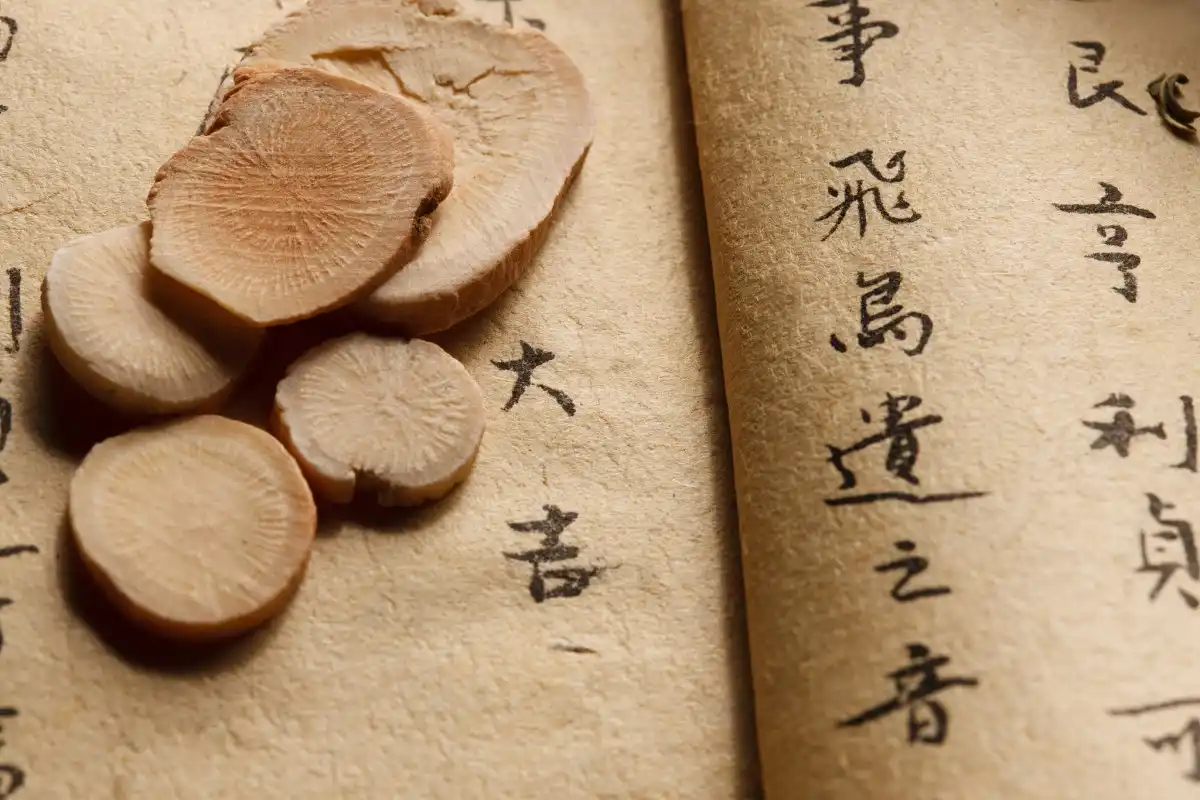 艮亨利貞
事飛鳥遺之音
大吉